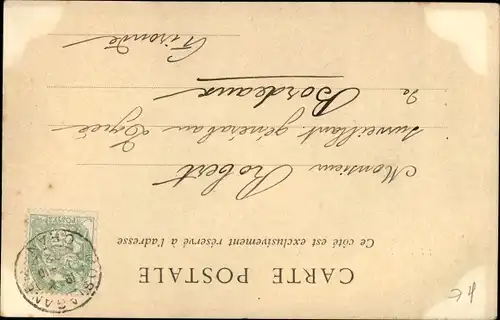 CARTE POSTALE
Ce côté est exclusivement réservé à l'adresse
Monsieur Robert
surveillant général au Lycée
de Bordeaux
Gironde